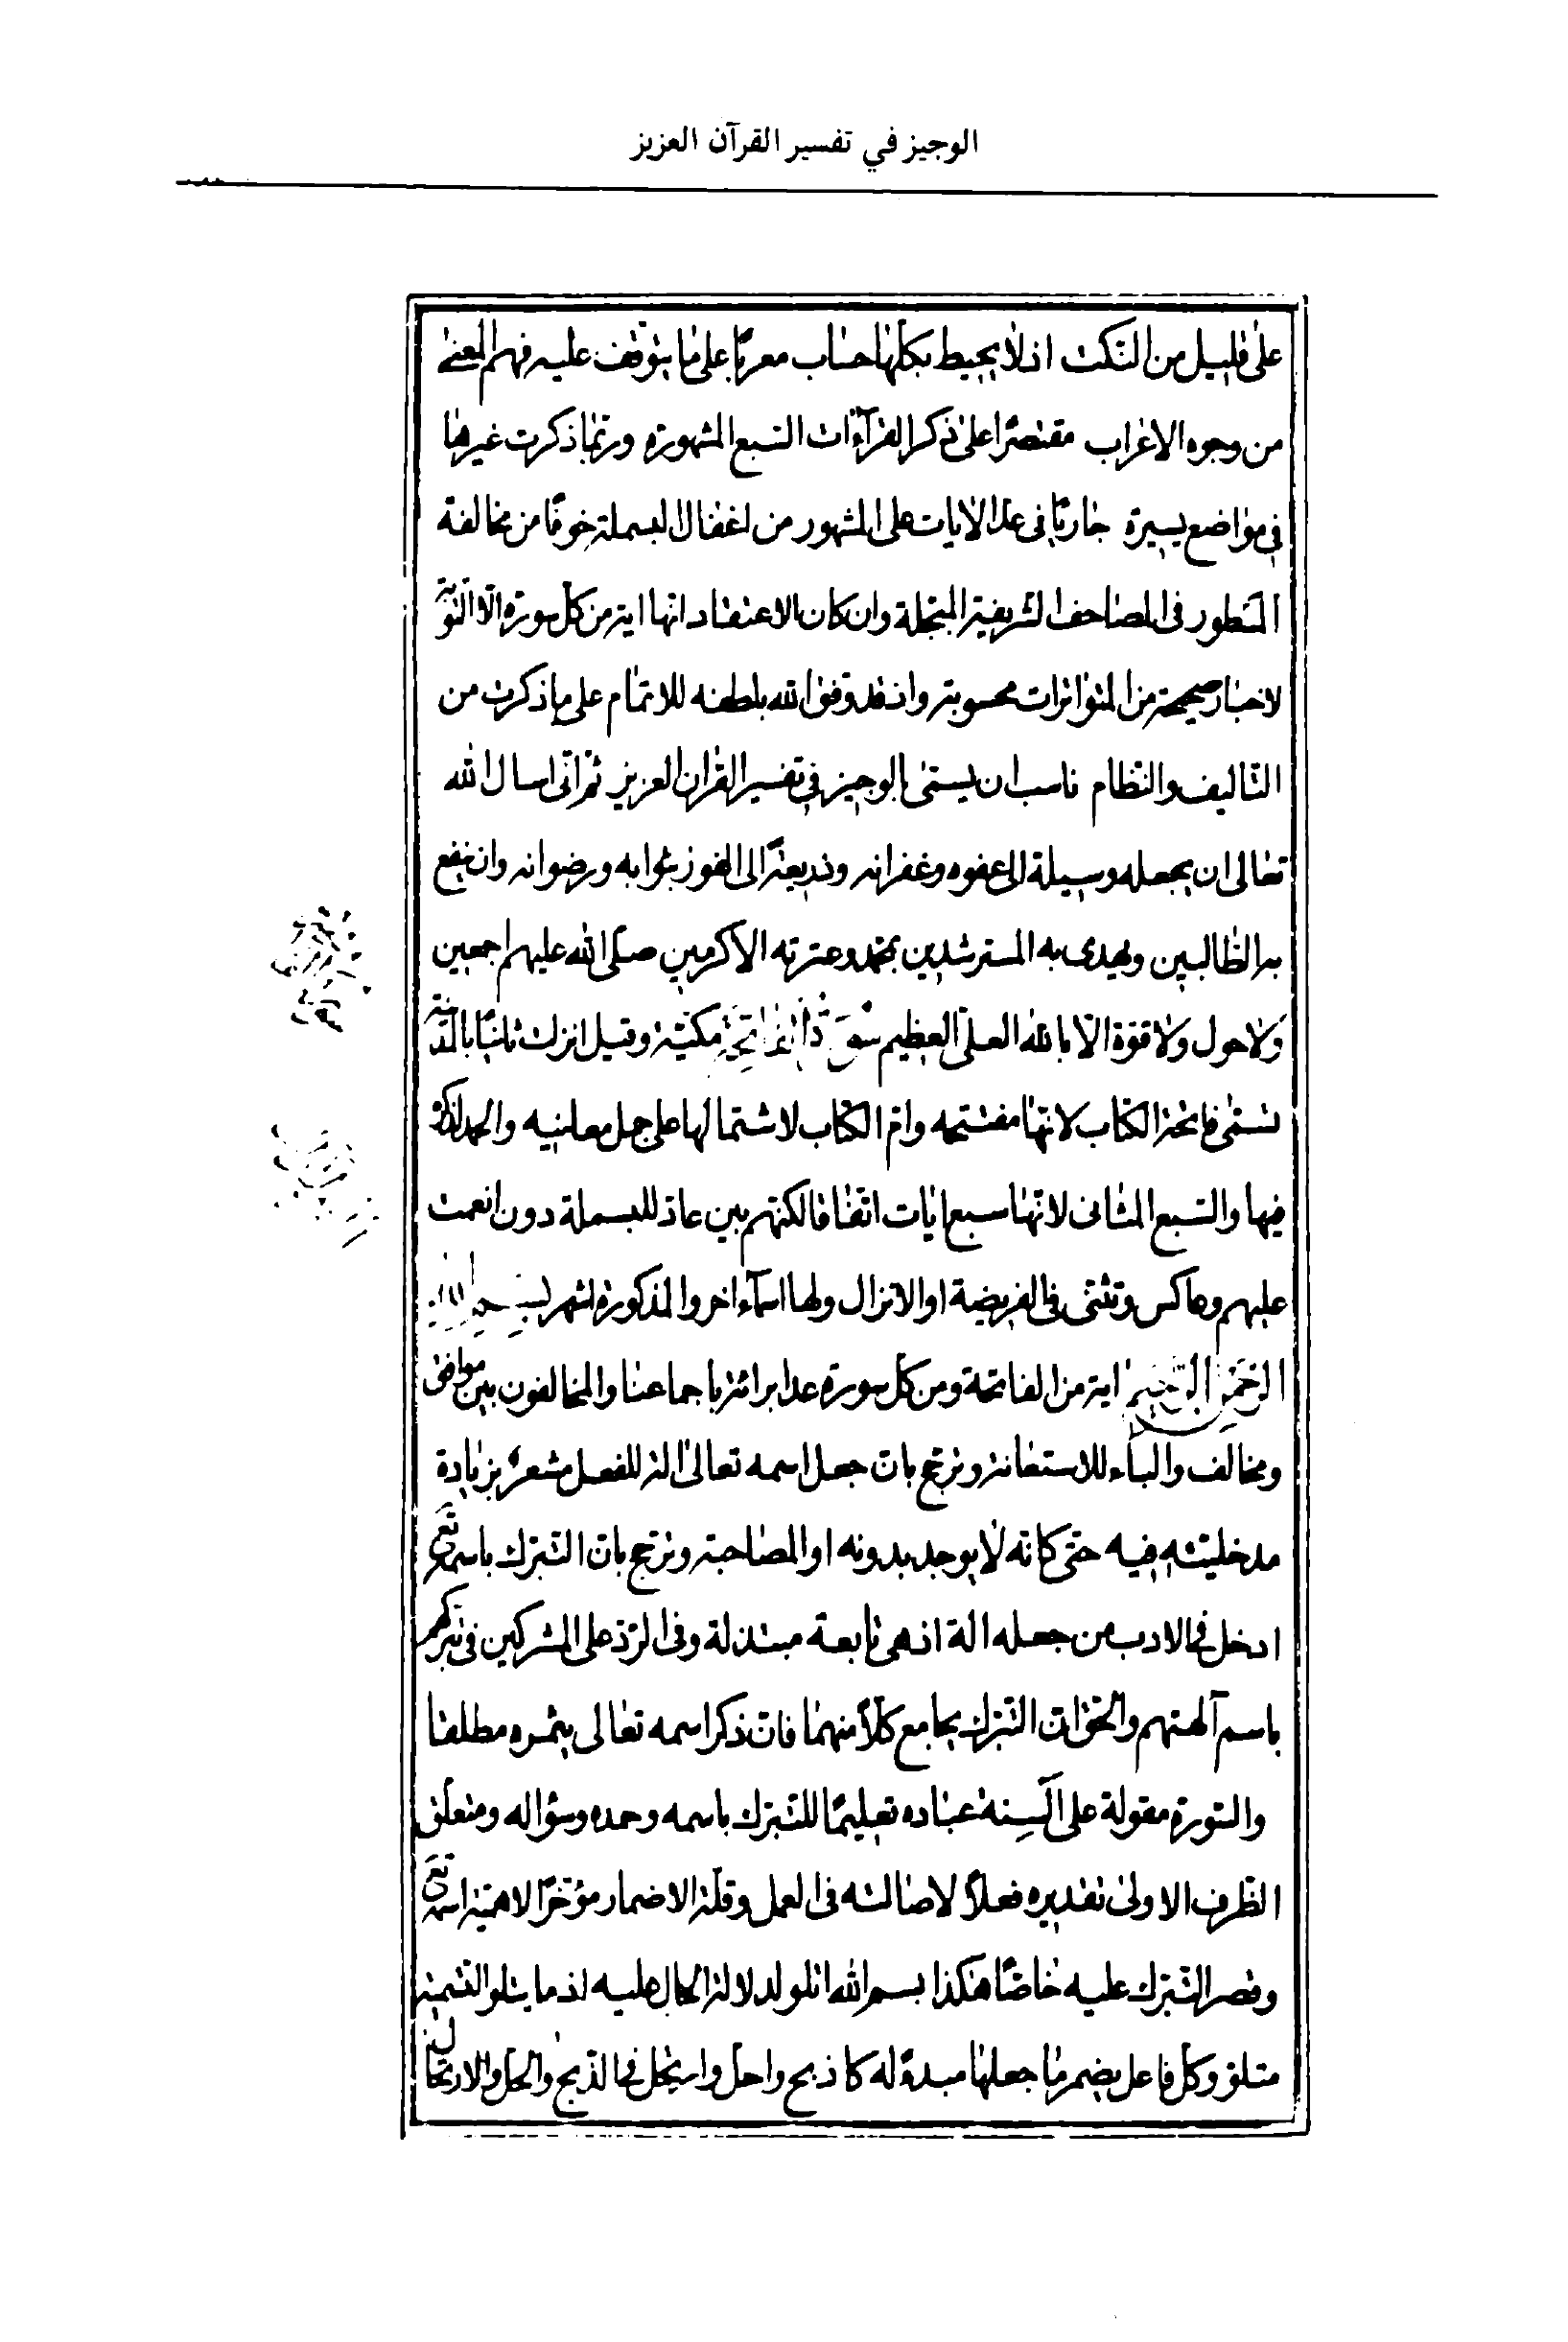 الوجيز في تفسير القرآن العزيز
على قليل من النكت اذ لا يحيط بكلها حساب معربا على ما يتوقف عليه فهم المعنى
من وجوه الاعراب مقتصرا على ذكر القرآءات السبع المشهورة وربما ذكرت غيرها
في مواضع يسيرة جاريا فى عد الايات على المشهور من اغفال البسملة خوفا من مخالفة
المسطور فى المصاحف الشريفة المبجلة وان كان الاعتقاد انها اية من كل سورة الا التوبة
لاخبار صحيحة من المتواترات محسوبة واذ قد وفق الله بلطفه للاتمام على ما ذكرت من
التاليف والنظام ناسب ان يسمى بالوجيز في تفسير القران العزيز ثم انى اسال الله
تعالى ان يجعله وسيلة الى عفوه وغفرانه وذريعة الى الفوز بثوابه ورضوانه وان ينفع
به الطالبين ويهدى به المسترشدين بمحمد وعترته الاكرمين صلى الله عليهم اجمعين
ولا حول ولا قوة الا بالله العلى العظيم سورة الفاتحة مكية وقيل انزلت ثانيا بالمدينة
تسمى فاتحة الكتاب لانها مفتتحه وام الكتاب لاشتمالها على جمل معانيه والحمد لذكره
فيها والسبع المثانى لانها سبع ايات اتفاقا لكنهم بين عاد للبسملة دون انعمت
عليهم وعاكس وتثنى فى الفريضة او الانزال ولها اسمآء اخر والمذكورة اشهر بسم الله
الرحمن الرحيم اية من الفاتحة ومن كل سورة عدا برائة باجماعنا والمخالفون بين موافق
ومخالف والبآء للاستعانة ونرجح بان جعل اسمه تعالى الة للفعل مشعر بزيادة
مدخليته فيه حتى كانه لا يوجد بدونه او المصاحبة ونرجح بان التبرك باسمه تع
ادخل فى الادب من جعله الة اذ هى تابعة مبتذلة وفى الرد على المشركين فى تبركهم
باسم آلهتهم والحق ان التبرك يجامع كلا منهما فان ذكر اسمه تعالى يثمره مطلقا
والسورة مقولة على السنة عباده تعليما للتبرك باسمه وحمده وسؤاله ومتعلق
الظرف الاولى تقديره فعلا لاصالته فى العمل وقلة الاضمار مؤخرا لاهمية اسمه تع
وقصر التبرك عليه خاصا هكذا بسم الله اتلو لدلالة الحال عليه اذ ما يتلو التسمية
متلو وكل فاعل يضمر ما جعلها مبدء له كاذبح واحل وارتحل فى الذبح والحل والارتحال